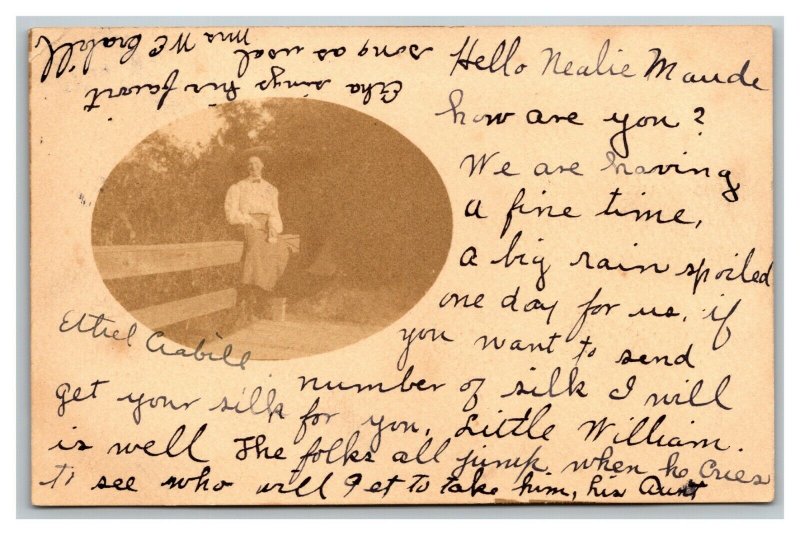 Hello Nealie Maude
how are you?
We are having
a fine time,
a big rain spoiled
one day for us, if
you want to send
number of silk I will
get your silk for you, Little William.
is well The folks all jump when he cries
to see who will get to take him, his Aunt
Etha sings his favorit
song as usal
Mrs W E Crabill
Ethel Crabill